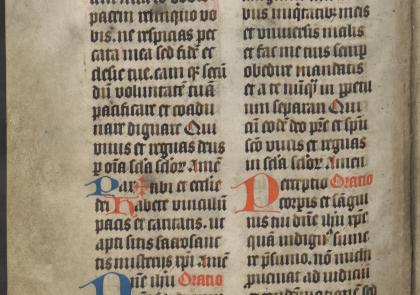 pacem relinquo vo
bis. ne respicias pec
cata mea sed fidem ec
clesie tue. eam qꝫ secū
dū voluntatē tuā
pacificare et coadu
nare dignare Qui
viuis et regnas deus
ꝑ oīa scła scłoꝝ Amē
Pax ✝ tibi et ecclie
dei Habete vinculū
pacis et caritatis. ut
apti sitis sacrosanc
tis misteriis xp̄i Amē
Dn̄e ih̄u Oratio
uius iniq̄tatibꝫ meis
et vniuersis malis
et fac me tuis semꝑ
obedire mandatis
et a te nūq̄ꝫ in ꝑpetu
um separari Qui
cū eodē deo pr̄e et sp̄u
sc̄o viuis et regnas
in scła scłoꝝ Amen
Perceptio Oratio
corpis et sāgui
nis tui dn̄e ih̄u xp̄e
quā indignꝰ sume
re p̄sumo. nō michi
ꝓueniat ad iudiciū
et condemnationē sed